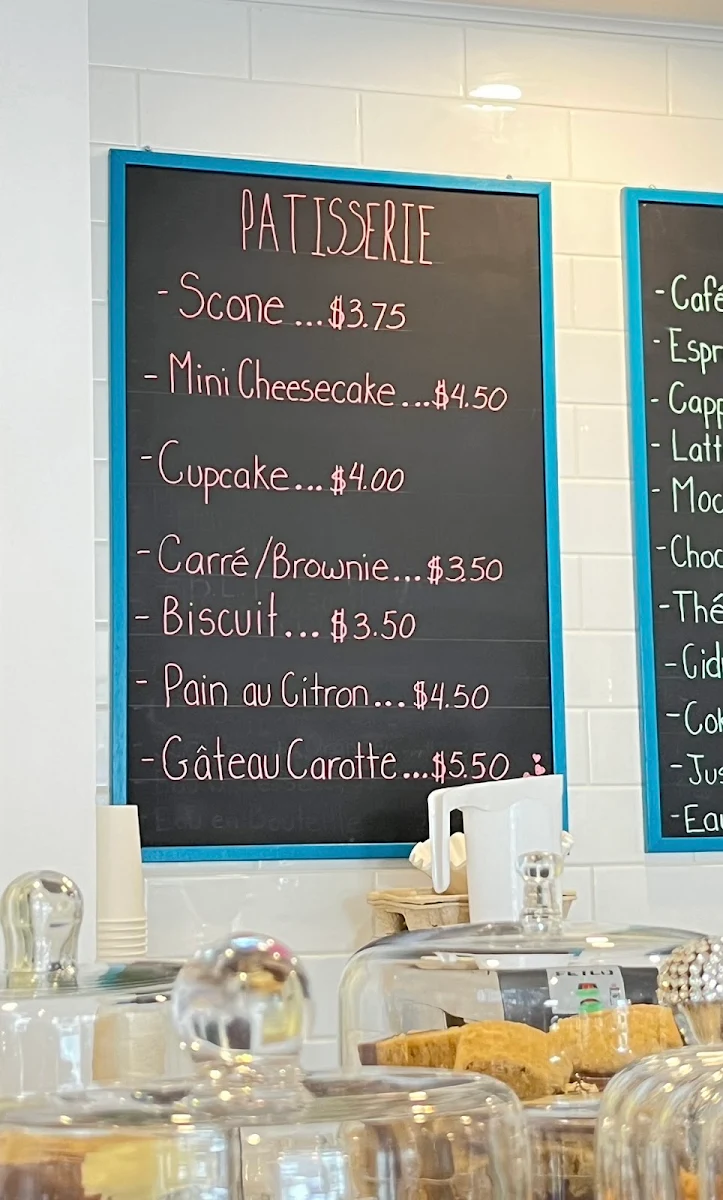 PATISSERIE
- Scone...$3.75
- Mini Cheesecake...$4.50
- Cupcake...$4.00
- Carré/Brownie...$3.50
- Biscuit...$3.50
- Pain au Citron...$4.50
- Gâteau Carotte...$5.50
- Café
- Espr
- Capp
- Latt
- Moc
- Choc
- Thé
- Cid
- Cok
- Jus
- Eau